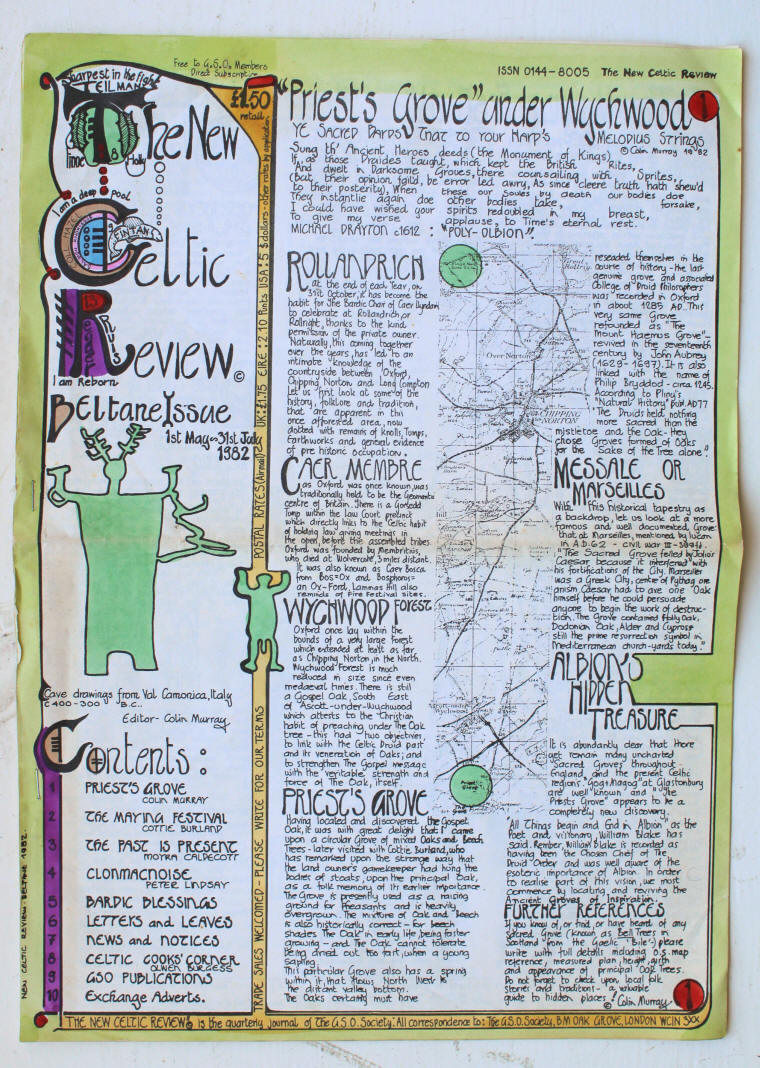 Free to G.S.O. Members
Direct Subscription
ISSN 0144-8005 The New Celtic Review
Sharpest in the fight
TEILMAN
The New
Tinne 8 Holly
I am a deep pool
COLL HAZEL
FINTAN
Celtic
Review ©
I am Reborn
Beltane Issue
1st May~31st July
1982
Cave drawings from Val Camonica, Italy
c400-300 B.C..
Editor- Colin Murray
Contents:
1 PRIEST'S GROVE
COLIN MURRAY
2 THE MAYING FESTIVAL
COTTIE BURLAND
3 THE PAST IS PRESENT
MOYRA CALDECOTT
4 CLONMACNOISE
PETER LINDSAY
5 BARDIC BLESSINGS
6 LETTERS and LEAVES
7 NEWS and NOTICES
8 CELTIC COOKS' CORNER
OLWEN BURGESS
9 GSO PUBLICATIONS
10 Exchange Adverts.
NEW CELTIC REVIEW: BELTANE 1982
£1.50
retail
TRADE SALES WELCOMED - PLEASE WRITE FOR OUR TERMS
POSTAL RATES (Airmail) UK:£1.75 EIRE:2.10 Punts USA:5 $dollars-other rates by application
"Priest's Grove" under Wychwood
1
YE SACRED BARDS THAT TO YOUR HARP'S MELODIUS STRINGS
© Colin Murray 1982
Sung th' Ancient Heroes deeds (the Monument of Kings)
If, as those Druides taught, which kept the British Rites,
And dwelt in Darksome Groves, there counsailing with Sprites,
(But, their opinion faild, be error led awry, As since cleere truth hath shew'd
to their posterity), When these our Soules by death our bodies doe
They instantlie again doe other bodies take, forsake,
I could have wished your spirits redoubled in my breast,
To give my verse applause, to Time's eternal rest.
MICHAEL DRAYTON c1612 : "POLY-OLBION"
ROLLANDRICH
at the end of each Year, on
31st October, it has become the
habit for The Bardic Chair of Caer Llyndain
to celebrate at Rollandrich, or
Rollright, thanks to the kind
permission of the private owner.
Naturally, this coming together
over the years, has led to an
intimate knowledge of the
countryside between Oxford,
Chipping Norton and Long Compton
Let us first look at some of the
history, folklore and tradition,
that are apparent in this
once afforested area, now
dotted with remains of Knolls, Tumps,
Earthworks and general evidence
of pre historic occupation.
CAER MEMBRE
as Oxford was once known, was
traditionally held to be the Geomantic
centre of Britain. There is a Gorsedd
Tump within the Law Court precinct
which directly links to the Celtic habit
of holding law giving meetings in
the open, before the assembled tribes.
Oxford was founded by Membritius,
who died at Wolvercote, 3 miles distant.
It was also known as Caer Bosca
from Bos=Ox and Bosphoros=
an Ox-Ford, Lammas Hill also
reminds of Fire Festival sites.
WYCHWOOD FOREST
Oxford once lay within the
bounds of a very large Forest
which extended at least as far
as Chipping Norton, in the North.
Wychwood Forest is much
reduced in size since even
mediaeval times. There is still
a Gospel Oak, South East
of Ascott-under-Wychwood
which attests to the Christian
habit of preaching under The Oak
tree - this had two objectives
to link with the Celtic Druid past
and its veneration of Oaks; and
to strengthen The Gospel message
with the 'veritable' strength and
force of The Oak, itself.
PRIEST'S GROVE
Having located and discovered the Gospel
Oak, it was with great delight that I came
upon a circular Grove of mixed Oaks and Beech
Trees - later visited with Cottie Burland, who
has remarked upon the strange way that
the land owner's gamekeeper had hung the
bodies of stoats, upon the principal Oak,
as a folk memory of its earlier importance.
The Grove is presently used as a raising
ground for Pheasants and is heavily
overgrown. The mixture of Oak and Beech
is also historically correct - for beech
shades The Oak in early life, being faster
growing - and The Oak cannot tolerate
being dried out too fast, when a young
sapling.
This particular Grove also has a spring
within it, that flows North West to
the distant valley bottom.
The Oaks certainly must have
Over Norton
CHIPPING
NORTON
reseeded themselves in the
course of history - the last
genuine grove and associated
College of Druid Philosophers
was recorded in Oxford
in about 1285 AD. This
very same Grove
refounded as "The
Mount Haemus Grove"
revived in the seventeenth
century by John Aubrey
(1629-1697). It is also
linked with the name of
Philip Bryddod - circa 1245.
According to Pliny's
"Natural History" publ. AD77
'The Druids held nothing
more sacred than the
mistletoe and the Oak - they
chose Groves formed of Oaks
for the Sake of the Tree alone.'
MESSALE OR
MARSEILLES
With This historical tapestry as
a backdrop, let us look at a more
famous and well documented Grove
that at Marseilles, mentioned by Lucan
in A.D.62 - civil war III-
"The Sacred Grove felled by Julius
Caesar because it interfered" with
his fortifications of the City. Marseilles
was a Greek City, centre of Pythagore
anism Caesar had to axe one Oak
himself before he could persuade
anyone to begin the work of destruc-
tion. The Grove contained Holly Oak,
Dodonian Oak, Alder and Cypress
still the prime resurrection symbol in
Mediterranean church-yards today."
ALBION'S
HIDDEN
TREASURE
It is abundantly clear that there
yet remain many uncharted
Sacred Groves throughout
England, and the present Celtic
regions. 'Gog & Magog' at Glastonbury
are well known and "The
Priests Grove" appears to be a
completely new discovery.
'All Things begin and End in Albion' as the
Poet and visionary, William Blake has
said. Rember, William Blake is recorded as
having been the Chosen Chief of The
Druid Order and was well aware of the
esoteric importance of Albion. In order
to realise part of this vision, we must
commence by locating and reviving the
Ancient Groves of Inspiration.
FURTHER REFERENCES
If you know of, or find, or have heard of any
Sacred Grove (known as Bell Trees in
Scotland from the Gaelic 'Bile') please
write with full details including o.s. map
reference, measured plan, height, girth
and appearance of principal Oak Trees.
Do not forget to check upon local folk
stories and traditions - a valuable
guide to hidden places!
© Colin Murray
1
THE NEW CELTIC REVIEW© is the quarterly journal of The G.S.O. Society: All correspondence to: The G.S.O. Society, BM OAK GROVE, LONDON WC1N 3XX